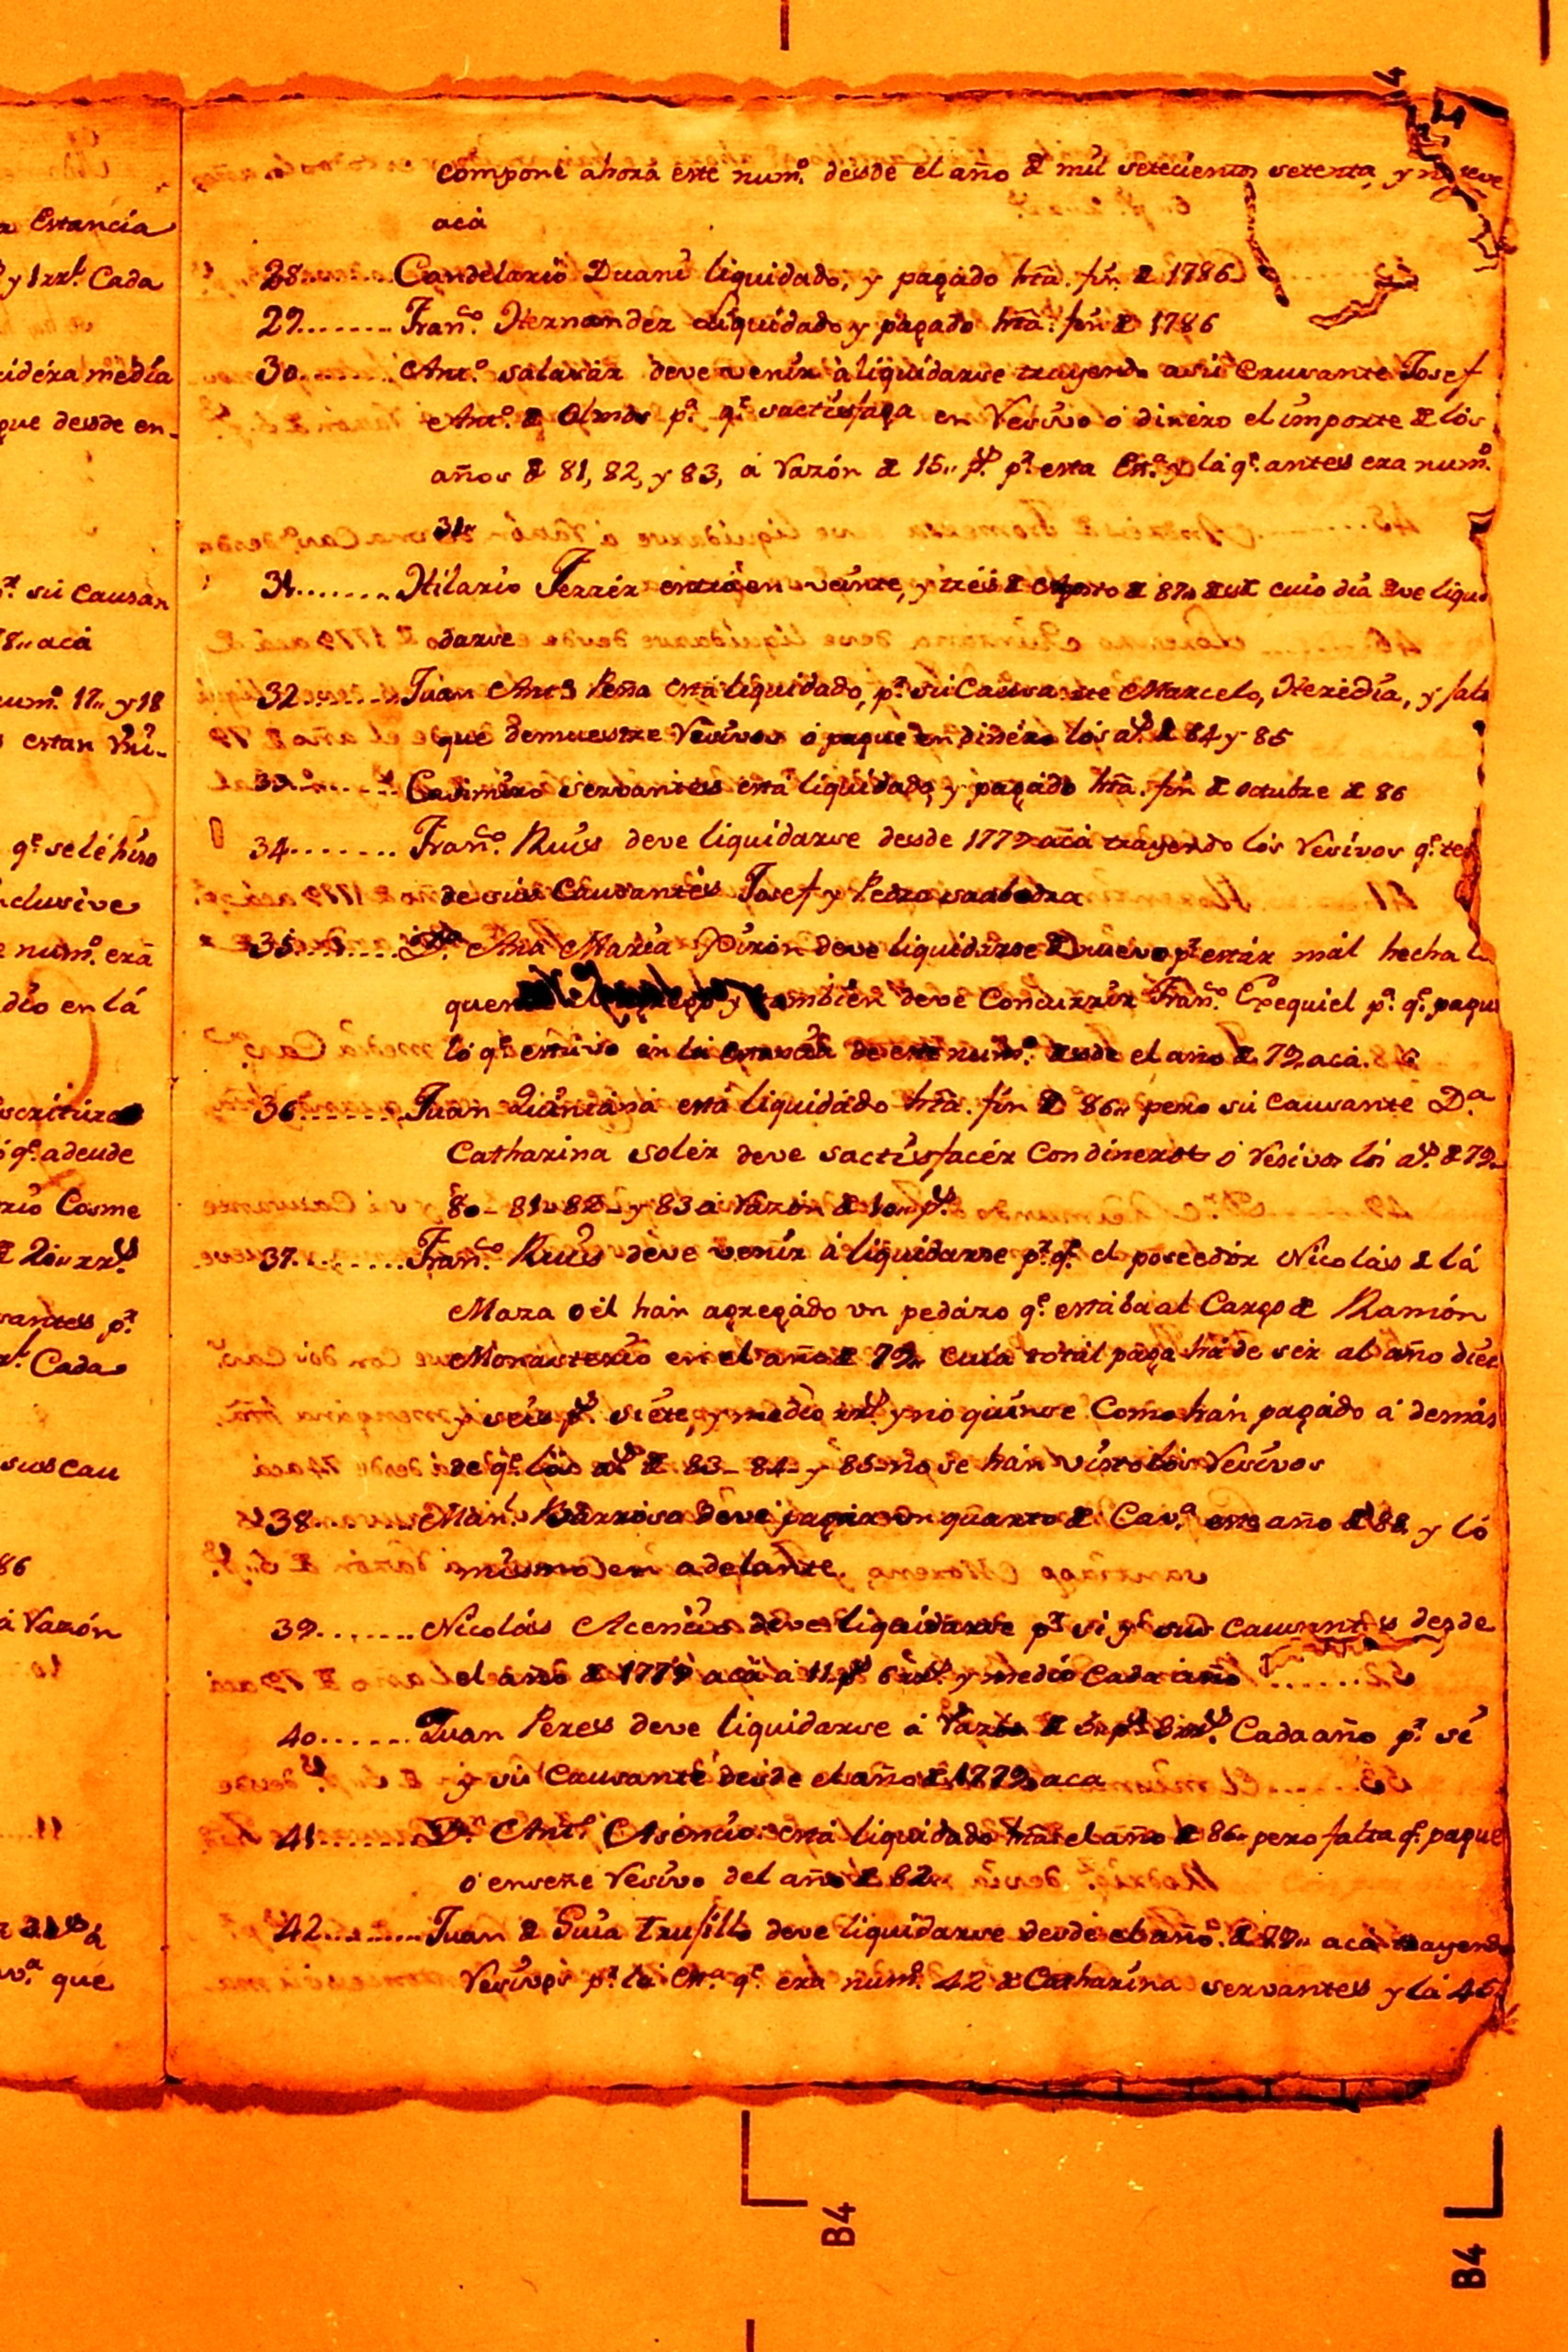 a Estancia
y 1 rr.l Cada
sidéra média
que desde en-
r. su causan
8,, acá
num.º 17,, y 18
s estan Vni-
q.e se lé hiso
nclusive
e num.º erá
dio en lá
scritura
ó q.e adeude
rio Cosme
de 20,, rr.s
santes p.r
Cada
sus cau
86
á Razón
v.a que
componé ahorá este num.º desde el año de mil setecientos setenta, y nueve
acá
28........Candelario Duani liquidado, y pagado htã. fin. de 1786
29........Fran.co Hernandez liquidado y pagado htã. fin de 1786
30........Ant.º salazár deve venir á liquidarse trayendo a su Causante Josef
Ant.º de Olmos p.a q.e sactisfaga en Resivo o dinéro el importe de lós
años de 81, 82, y 83, á razón de 15,, p.s p.r esta Est.a y lá q.e antes era num.º
31
31........Hilario Ferrér entró en veinte, y tréis de Agosto de 87,, desde cuio diá deve liqui
darse
32........Juan Ant.º Peña está liquidado, p.r su Causante Marcelo, Heredia, y falta
que demuestre Resivos o pague en dinéro lós a.s de 84 y 85
33........Casimiro servantes está liquidado, y pagádo htã. fin de octubre de 86
34........Fran.co Ruis deve liquidarse desde 1779 acá trayendo lós Resivos q.e te
de sus Causantés Josef y Pedro saabedra
35........D.a Ana Maria Pirón deve liquidarse de nuevo p.r estár mál hecha l
quen y también deve Concurrir Fran.co Exequiel p.a q.e pague
ló q.e estuvo en la estancia de este num.º desde el año de 79 acá.
36........Juan Quintaná está liquidádo htã. fin de 86,, pero su causante D.a
Catharina solér deve sactisfacér con dineros o Resivos lós a.s de 79-
80- 81- 82- y 83 á Razón de 10,, p.s
37........Fran.co Ruis deve venir á liquidarse p.r q.e el poseedór Nicolás de lá
Maza o él hán agregádo vn pedázo q.e estába al Cargo de Ramón
Monasterio en el año de 79,, cuiá totál pága há de sér al año diéz
y seis p.s siéte, y medio rr.s y nó quinse Como hán pagádo á demás
de q.e lós a.s de 83- 84- y 85- nó se hán visto lós Resivos
38........Man.l Barrosa deve pagár vn quarto de Cav.a este año de 88, y ló
mismo en adelante.
39........Nicolás Acencio deve liquidarse p.r si y p.r sus Causantes desde
el año de 1779 acá á 11 p.s 6 rr.s y medió Cada año
40........Juan Peres deve liquidarse á Razón de 5,, p.s 3 rr.s Cada año p.r sé
y su Causanté desde el año de 1779 aca
41........D.n Ant.º Asencio está liquidado htã. el año de 86,, pero falta q.e pague
o enseñe Resivo del año de 82
42........Juan de Guia Trusillo deve liquidarse desde el año. de 79,, acá trayendo
Resivos p.r lá Est.a q.e era num.º 42 de Catharina servantes y lá 45
B4
B4